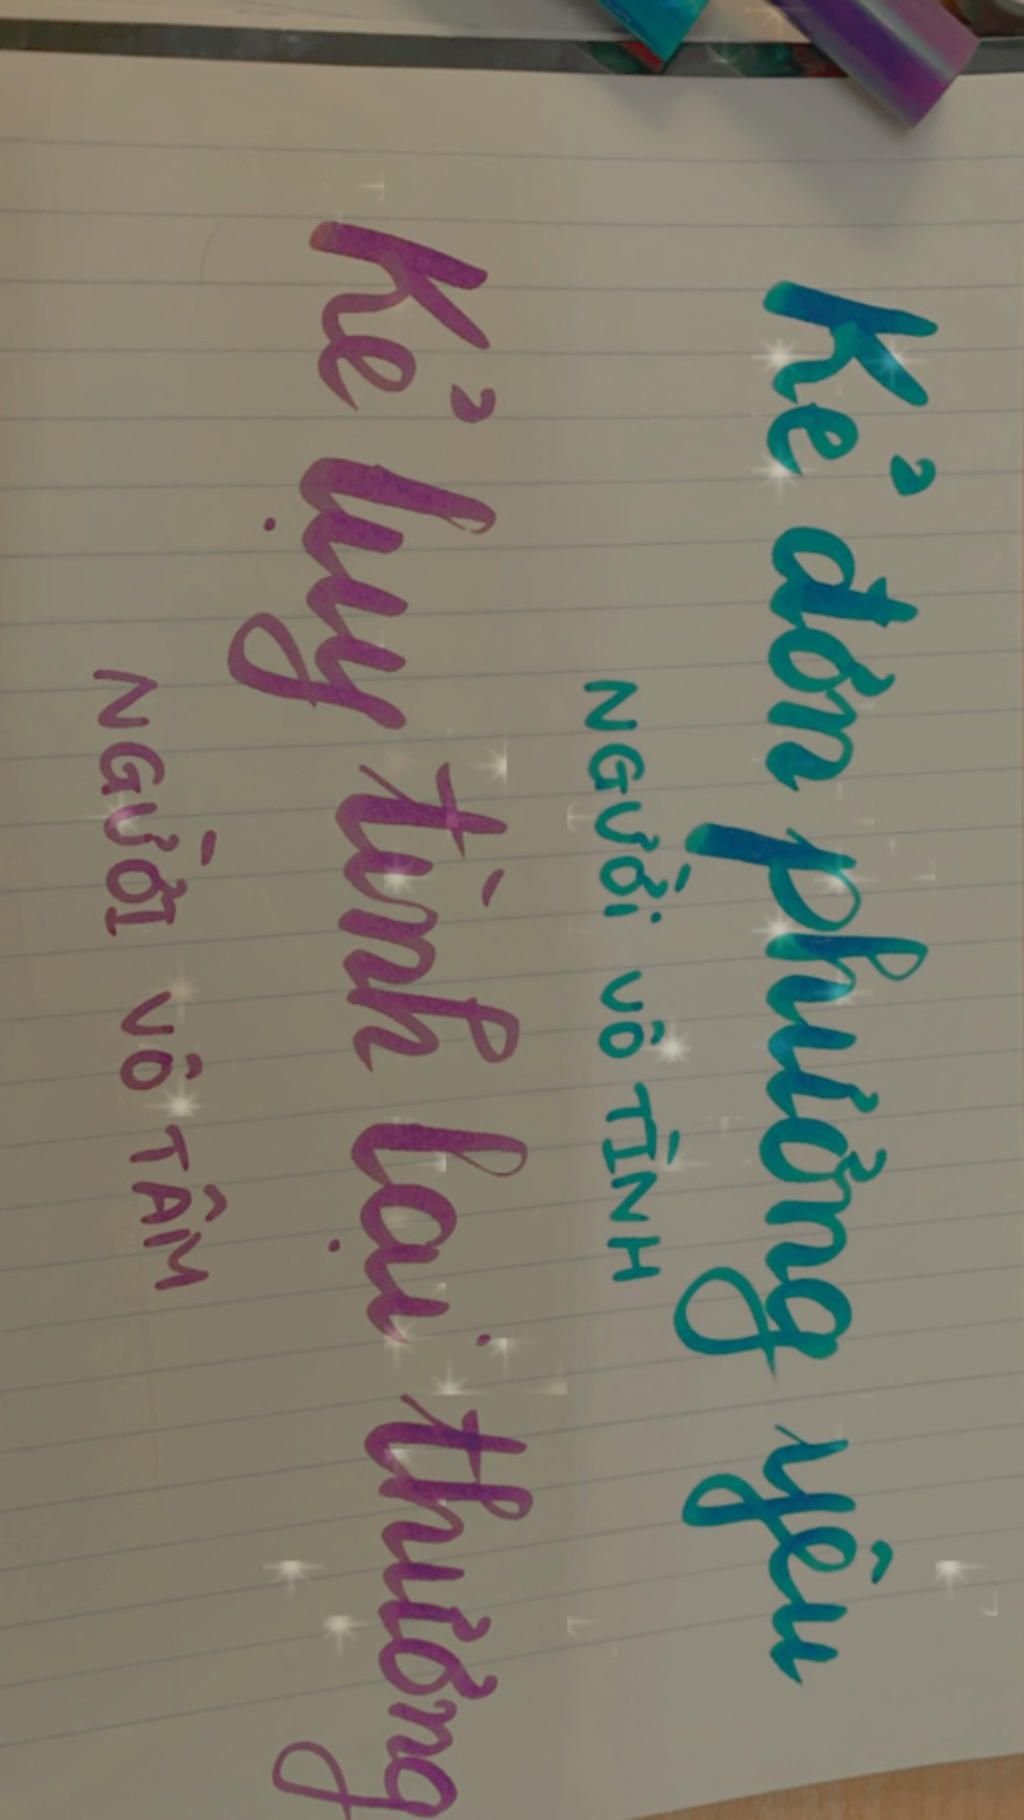 Kẻ đơn phương yêu
NGƯỜI VÔ TÌNH
Kẻ lụy tình lại thương
NGƯỜI VÔ TÂM